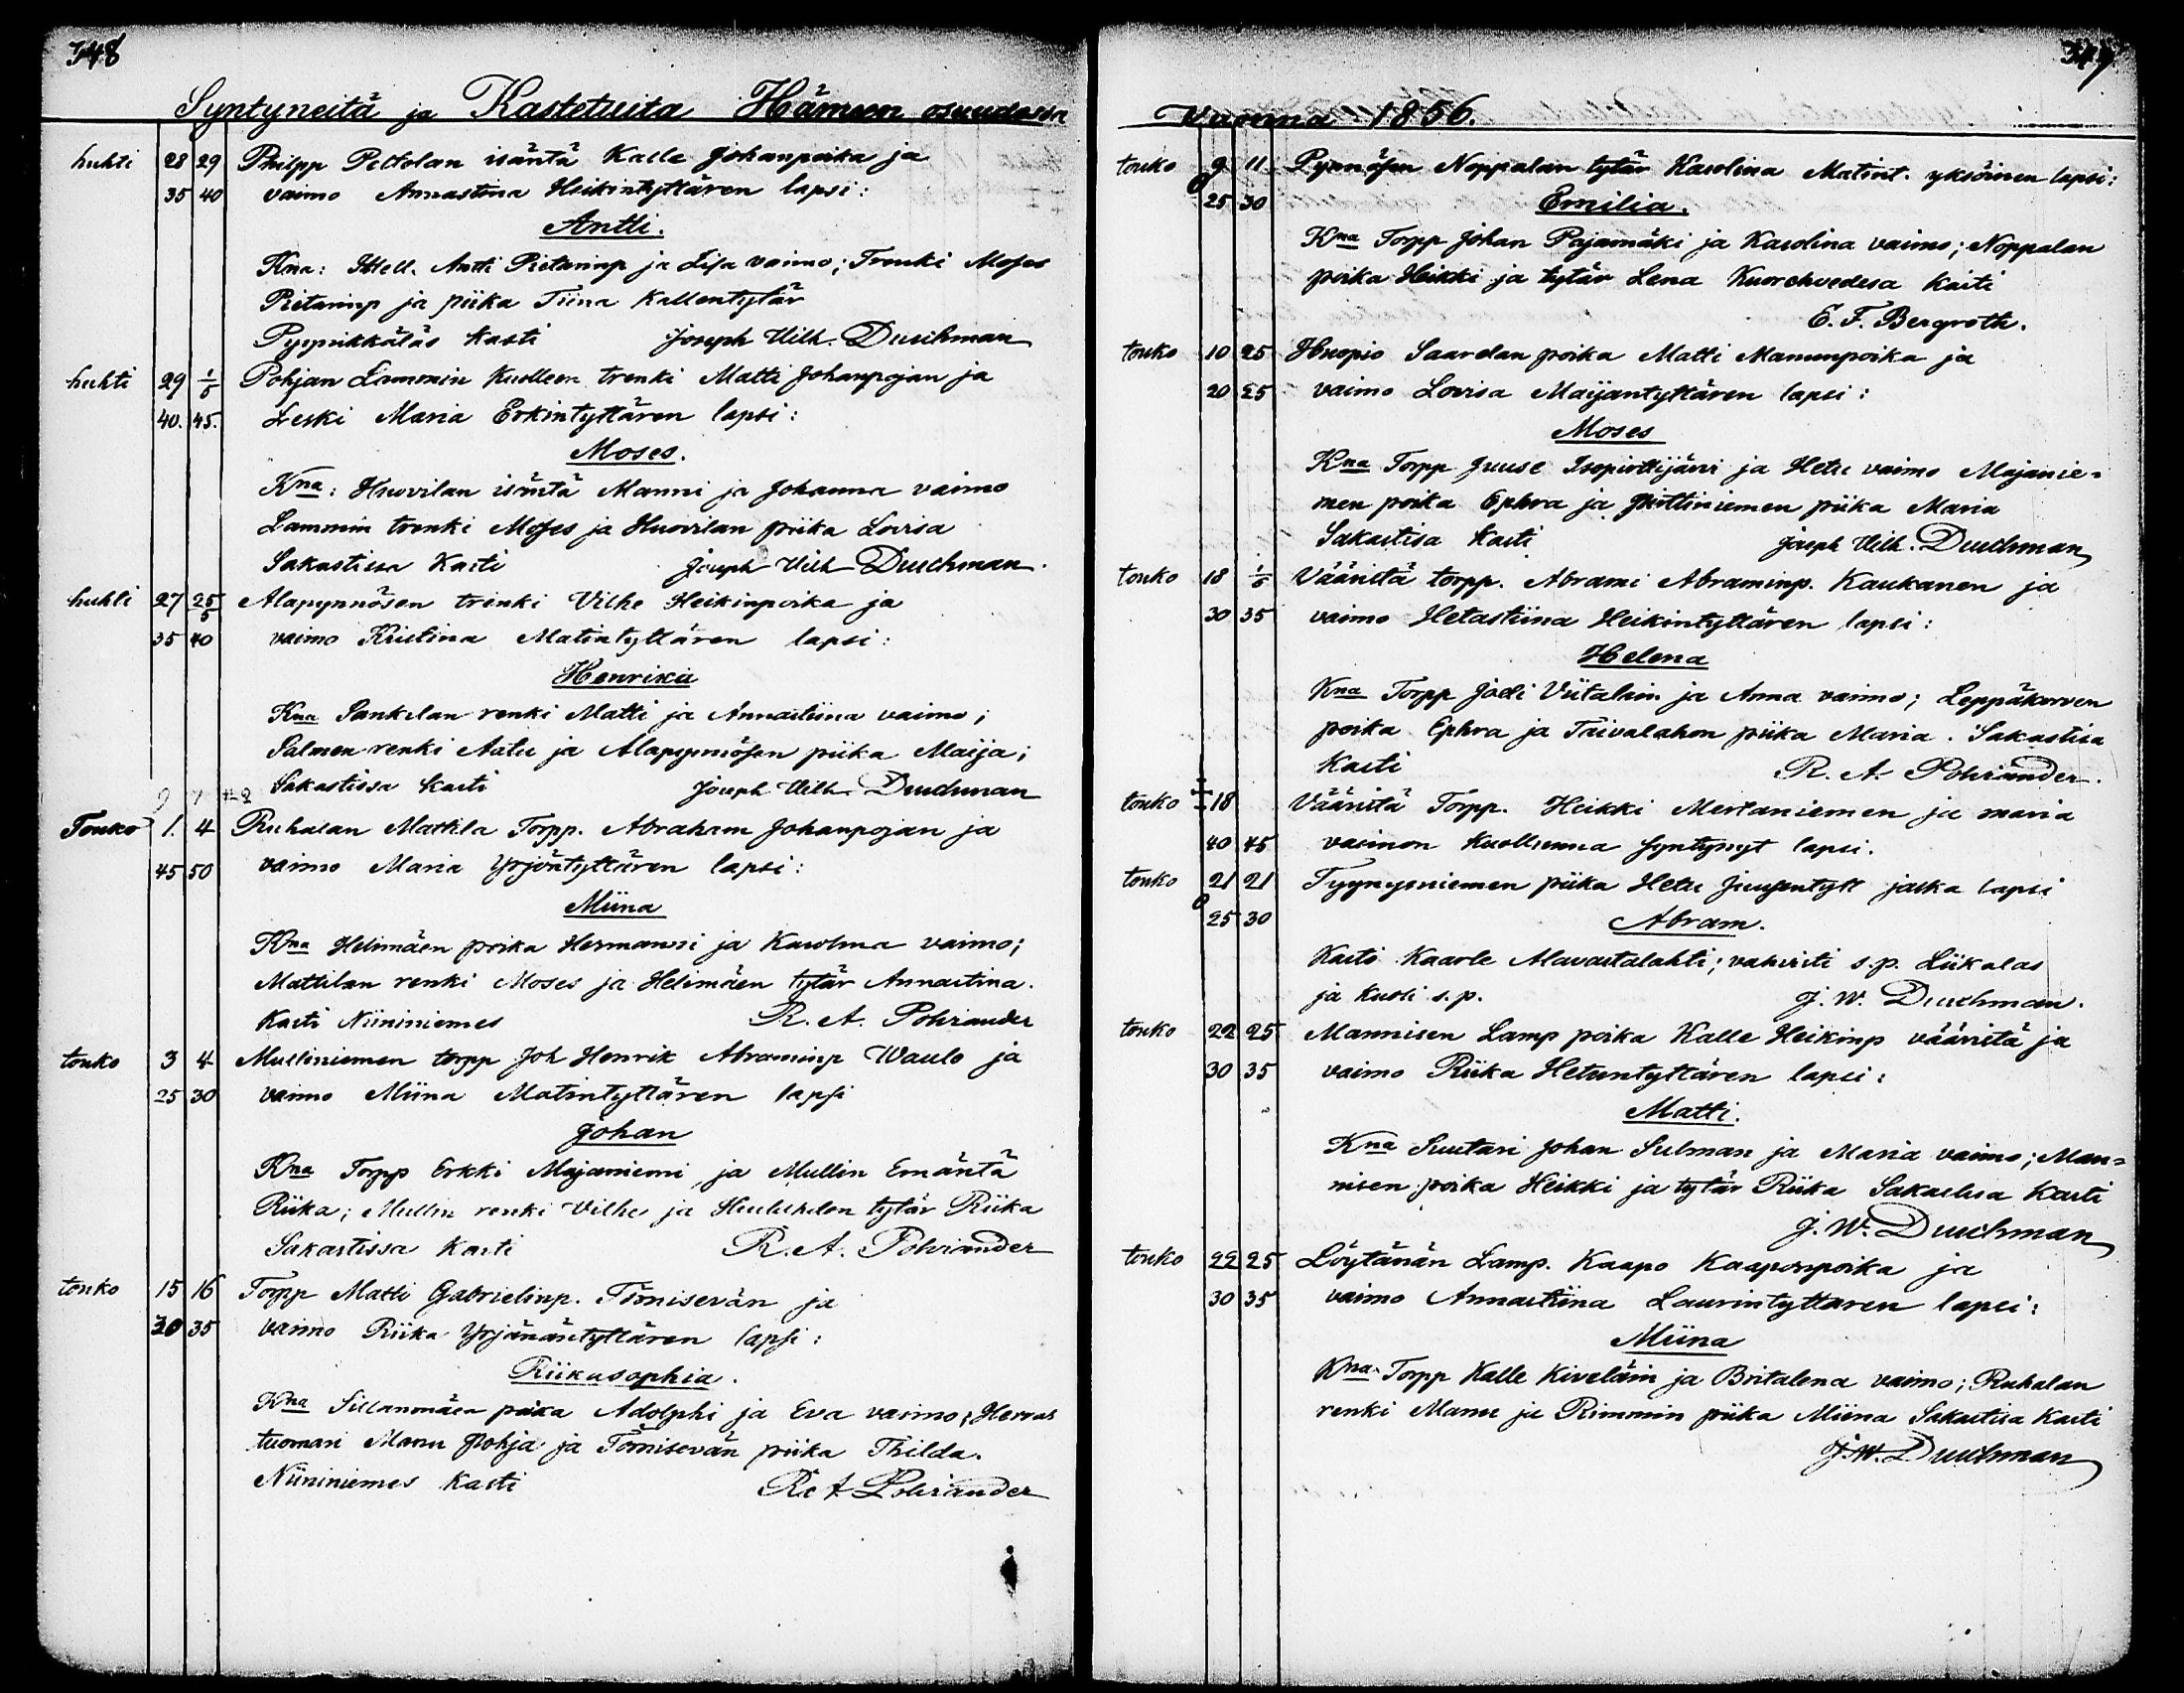 348
Syntyneitä ja Kastetuita Hämeen osuudessa
huhti 28 29 Philpp Peltolan isäntä Kalle Johanpoika ja
35 40 vaimo Annastina Heikintyttären lapsi:
Antti.
Kna: Itsell. Antti Pietarinp ja Lisa vaimo; Trenki Moses
Pietarinp ja piika Tiina Kallentytär
Pyynikkäläs kasti Joseph Wilh. Duuhman
huhti 29 1/5 Pohjan Lammin Kuolleen trenki Matti Johanpojan ja
40. 45. Leski Maria Erkintyttären lapsi:
Moses.
Kna: Huovilan isäntä Manni ja Johanna vaimo
Lammin trenki Moses ja Huovilan piika Lovisa
Sakastissa Kasti Joseph Wilh Duuhman.
huhti 27 25/5 Alapynnösen trenki Vilhe Heikinpoika ja
35 40 vaimo Kristina Matintyttären lapsi:
Henrika
Kna Sankilan renki Matti ja Annastiina vaimo;
Salmen renki Aatu ja Alapynnösen piika Maija;
Sakastissa kasti Joseph Wilh. Duuhman
Touko 1. 4 Ruhalan Mattila Torpp. Abraham Johanpojan ja
45 50 vaimo Maria Yrjöntyttären lapsi:
Miina
Kna Helimäen poika Hermanni ja Karolina vaimo;
Mattilan renki Moses ja Helimäen tytär Annastina.
Kasti Niininiemes R. A. Pohiander
touko 3 4 Mulliniemen torpp Joh Henrik Abraminp Waulo ja
25 30 vaimo Miina Matintyttären lapsi
Johan
Kna Torpp Erkki Majaniemi ja Mullin Emäntä
Riika; Mullin renki Vilhe ja tytär Riika
Sakastissa Kasti R. A. Pohiander
touko 15 16 Torpp Matti Gabrielinp. Törnisevän ja
30 35 vaimo Riika Yrjänäntyttären lapsi:
Riikasophia.
Kna Sillanmäen poika Adolphi ja Eva vaimo; Herras
tuomari Manu Pohja ja Törnisevän piika Thilda.
Niininiemes Kasti R. A. Pohiander
349
Vuonna 1856.
touko 9 11 Pynnösen Noppalan tytär Karolina Matint. yksöinen lapsi:
25 30 Emilia.
Kna Torpp Johan Pajamäki ja Karolina vaimo; Noppalan
poika Heikki ja tytär Lena Kuorehvedesa kasti
E. F. Bergroth.
touko 10 25 Saarelan poika Matti Manunpoika ja
20 25 vaimo Lovisa Maijantyttären lapsi:
Moses
Kna Torpp Juuse Isopirttijärvi ja Hetu vaimo Majanie=
men poika Ephra ja Pirttiniemen piika Maria
Sakastisa kasti Joseph Wilh. Duuhman
touko 18 1/6 Vääristä torpp. Abrami Abraminp. Kaukanen ja
30 35 vaimo Hetastiina Heikintyttären lapsi:
Helena
Kna Torpp Joeli Viitalain ja Anna vaimo; Leppäkorven
poika Ephra ja Taivalahon piika Maria. Sakastisa
kasti R. A. Pohiander.
touko 18 Vääristä Torpp. Heikki Mertaniemen ja maria
40 45 vaimon kuolluunna syntynyt lapsi.
touko 21 21 Tyynysniemen piika Hetu Juusentytt jalka lapsi
25 30 Abram.
Kasti Kaarle Alavastalahti; vahvisti s.p. Liikalas
ja kuoli s.p. J. W. Duuhman.
touko 22 25 Mannisen Lamp poika Kalle Heikinp vääristä ja
30 35 vaimo Riika Hetuntyttären lapsi:
Matti.
Kna Suutari Johan Sulman ja Maria vaimo; Man=
nisen poika Heikki ja tytär Riika Sakastisa kasti
J. W. Duuhman
touko 22 25 Löytänän Lamp. Kaapo Kaaponpoika ja
30 35 vaimo Annastiina Laurintyttären lapsi:
Miina
Kna Torpp Kalle Kiveläin ja Britalena vaimo; Ruhalan
renki Manu ja Rimmin piika Miina Sakastisa kasti
J. W. Duuhman